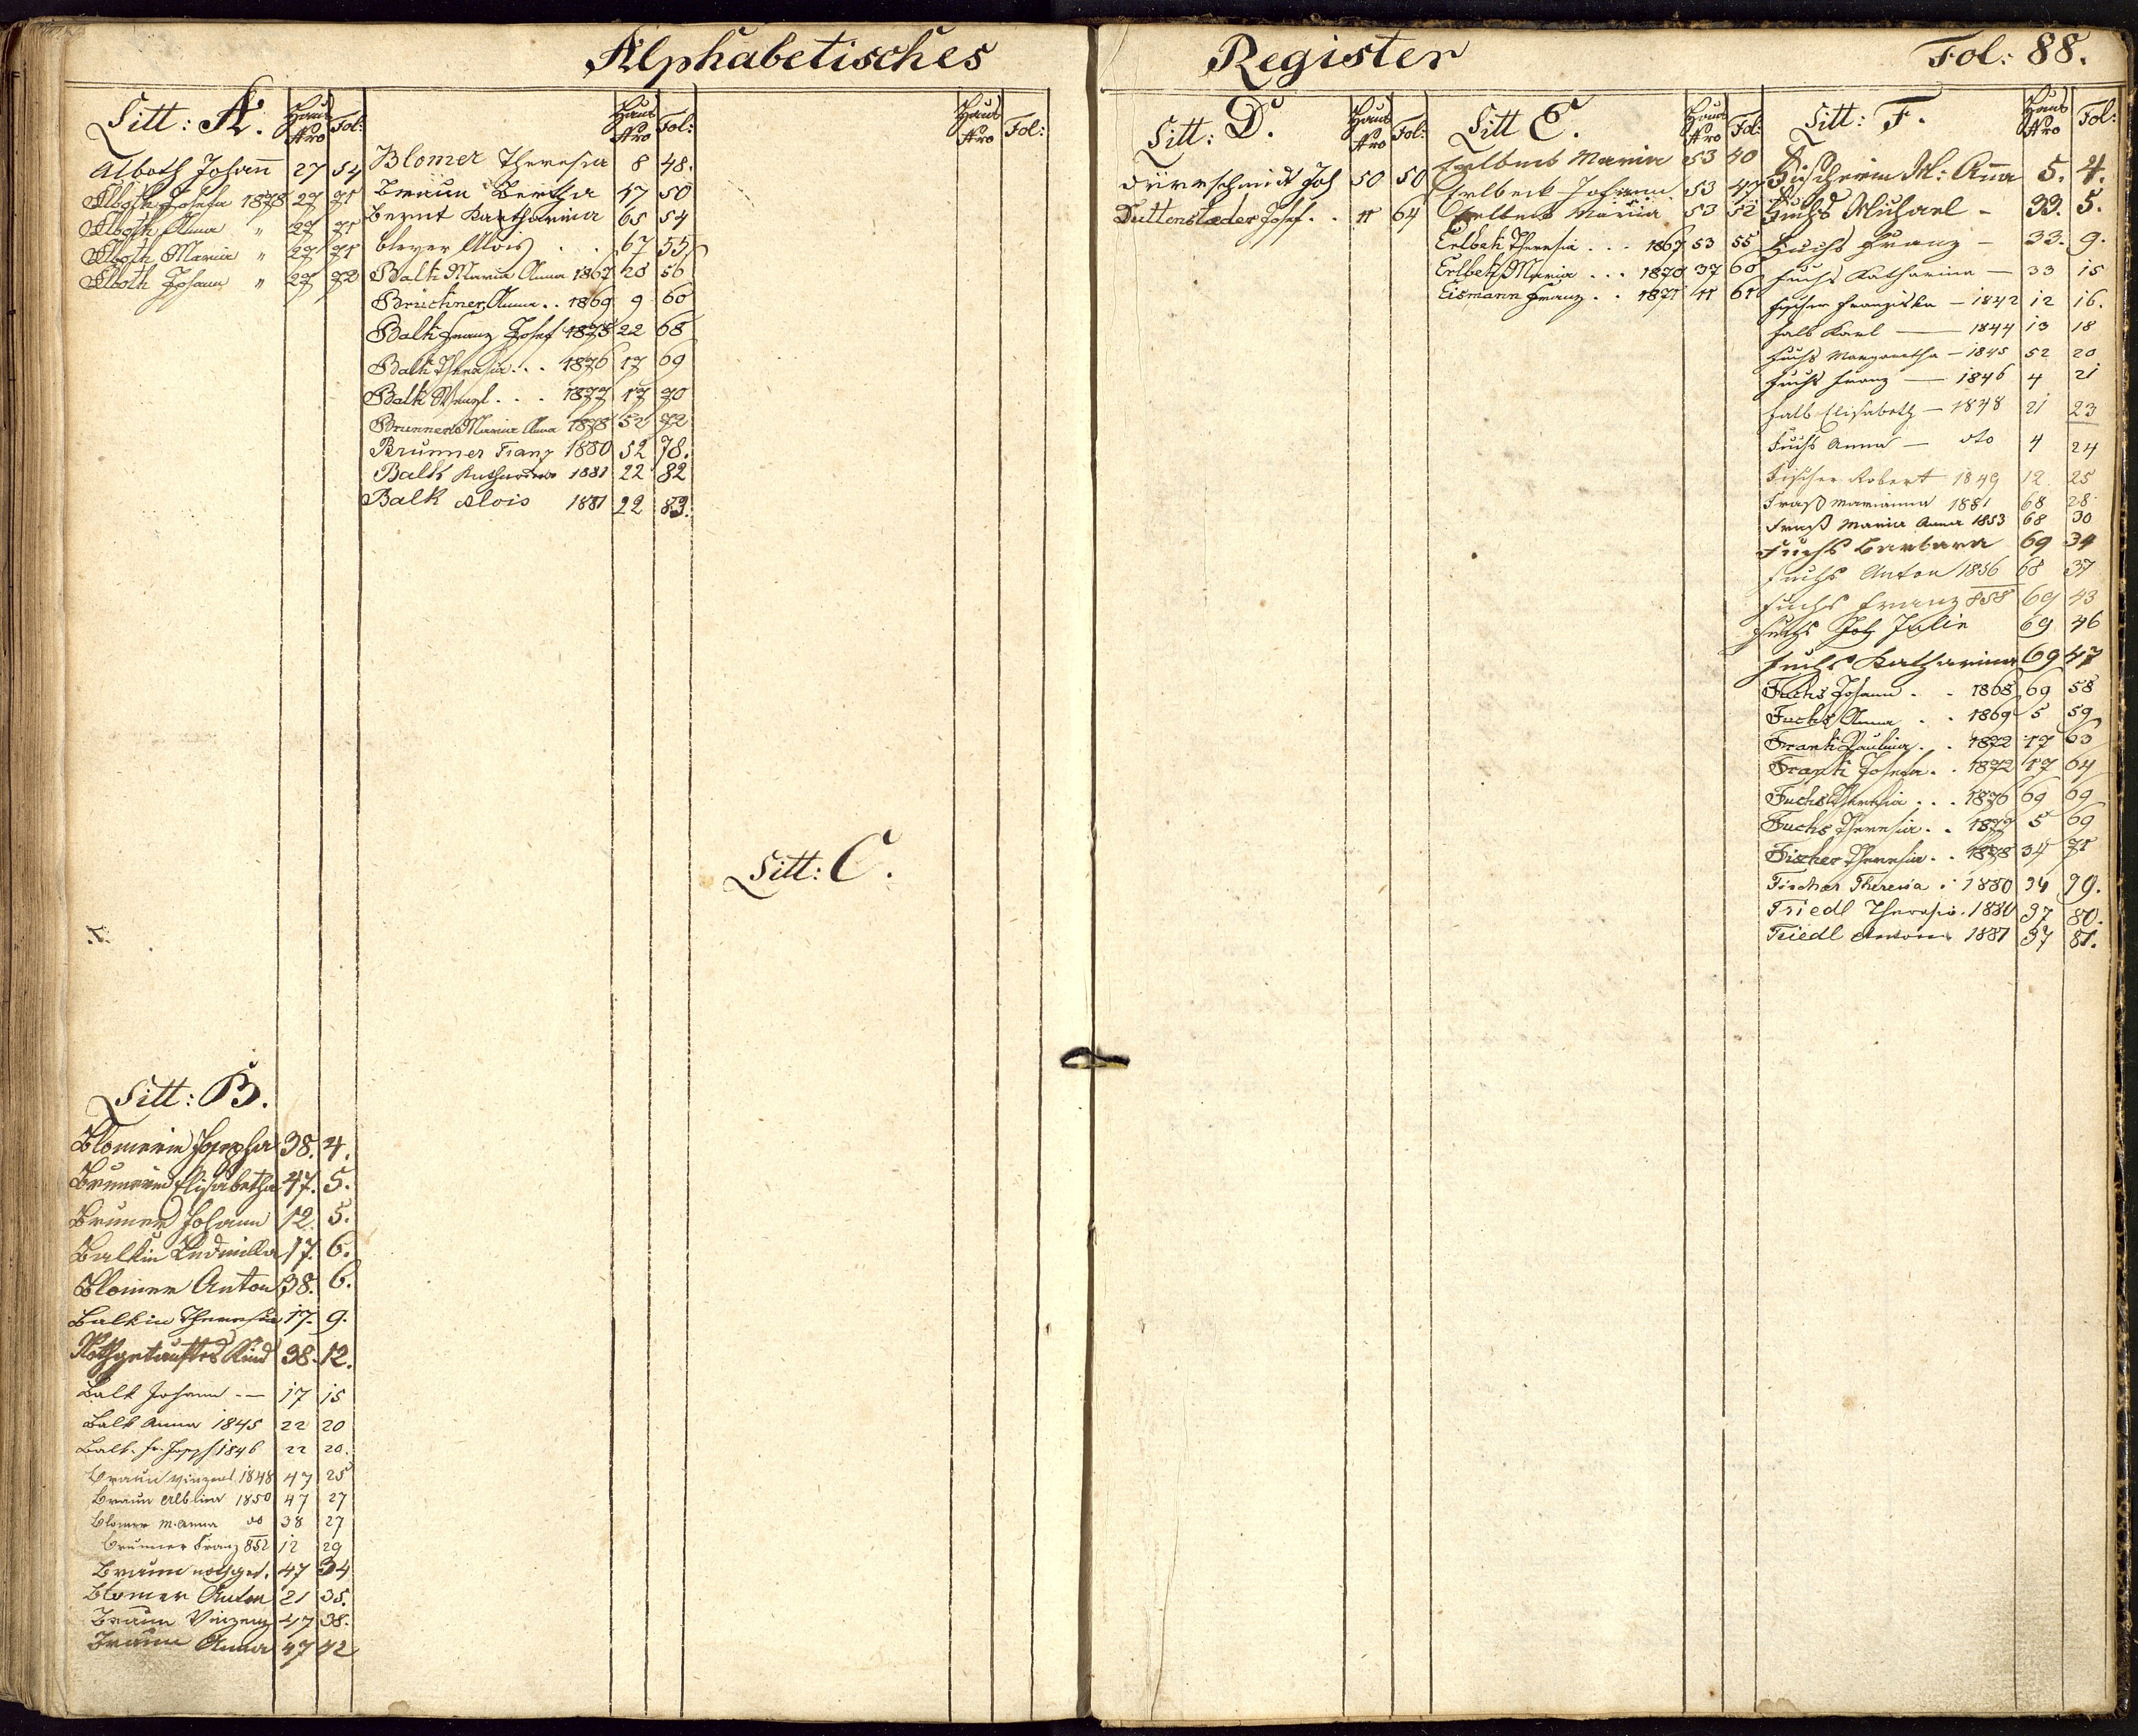 Alphabetisches
Litt: A. Haus Nro Fol:
Alboth Johann 27 54
Alboth Josefa 1878 27 71
Alboth Anna " 27 71
Alboth Maria " 27 71
Alboth Johann " 27 72
Litt: B.
Blomerin Josepha 38. 4.
Brunerin Elisabetha 47. 5.
Bruner Johann 12. 5.
Balkin Ludmilla 17. 6.
Blomer Anton 38. 6.
Balkin Theresia 17. 9.
Nothgetauftes Kind 38. 12.
Balk Johann - — 17 15
Balk Anna 1845 22 20
Balk Fr. Joseph 1846 22 20.
Braun Vinzenz 1848 47 25
Braun Albina 1850 47 27
Blomer M. Anna do 38 27
Brunner Franz 852 12 29
Braun nothget. 47 34
Blomer Anton 21 35.
Braun Vinzenz 47 38.
Braun Anna 47 42
Haus Nro Fol:
Blomer Theresia 8 48.
Braun Bertha 47 50
Bernt Katharina 65 54
Bleyer Alois . . 67 55
Balk Maria Anna 1867 28 56
Brückner Anna . . 1869 9 60
Balk Franz Josef 1875 22 68
Balk Theresia . . . 1876 17 69
Balk Wenzl . . . 1877 17 70
Brunner Maria Anna 1878 52 72
Brunner Franz 1880 52 78.
Balk Katharina 1881 22 82
Balk Alois 1881 22 83.
Haus Nro Fol:
Litt: C.
Register
Fol: 88.
Litt: D. Haus Nro Fol:
Dürrschmidt Joh 50 50
Duttenstaeder Josef . . 11 64
Litt E. Haus Nro Fol:
Erlbeck Maria 53 40
Erlbeck Johann 53 47
Erlbeck Maria 53 52
Erlbek Theresia . . . 1867 53 55
Erlbek Maria . . . 1870 37 60
Eismann Franz . . 1871 11 61
Litt: F. Haus Nro Fol:
Fischerin M: Anna 5. 4.
Fuchs Michael - 33. 5.
Fuchs Franz - 33. 9.
Fuchs Katharina — 33 15
Fischer Franziska — 1842 12 16.
Falb Karl — 1844 13 18
Fuchs Margaretha — 1845 52 20
Fuchs Franz — 1846 4 21
Falb Elisabeth — 1848 21 23
Fuchs Anna — dto 4 24
Fischer Robert 1849 12 25
Fraß Marianna 1851 68 28
Fraß Maria Anna 1853 68 30
Fuchs Barbara 69 34
Fuchs Anton 1856 68 37
Fuchs Franz 858 69 43
Fuchs Julie 69 46
Fuchs Katharina 69 47
Fuchs Johann . . 1868 69 58
Fuchs Anna . . 1869 5 59
Frank Paulina . . 1872 17 63
Frank Josefa . . 1872 17 64
Fuchs Theresia . . . 1876 69 69
Fuchs Theresia . . 1877 5 69
Fischer Theresia . . 1878 34 71
Fischer Theresia . 1880 34 79.
Friedl Theresia . 1880 37 80.
Friedl Anton 1881 37 81.